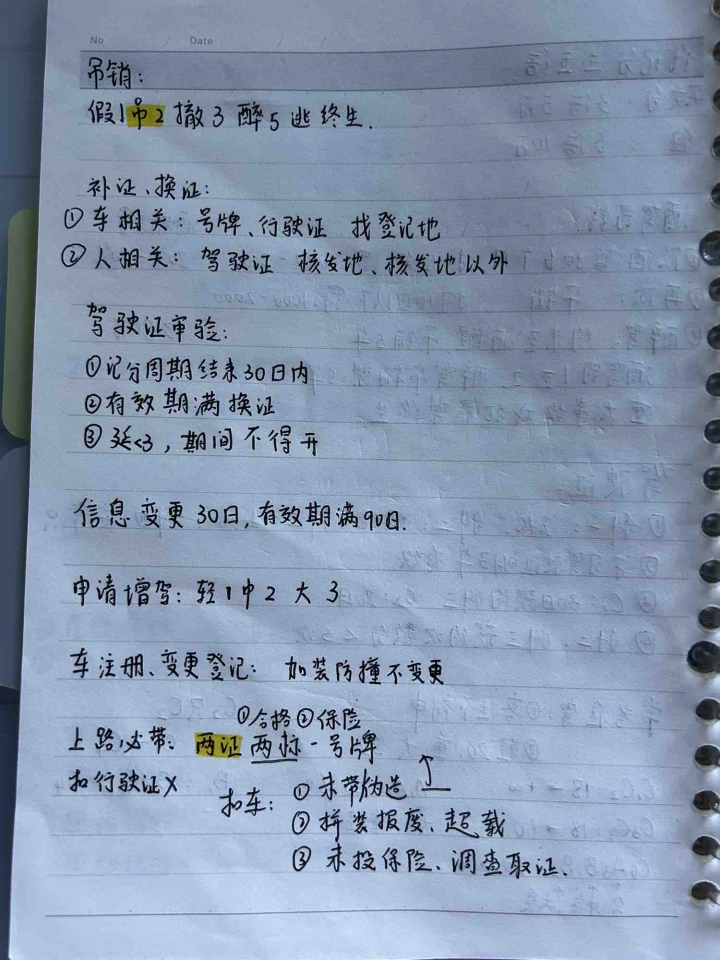 No / Date / /
吊销:
假1吊2 撤3 醉5 逃终生.
补证、换证:
①车相关: 号牌、行驶证 找登记地
②人相关: 驾驶证 核发地、核发地以外
驾驶证审验:
①记分周期结束30日内
②有效期满换证
③延<3, 期间不得开
信息变更30日,有效期满90日.
申请增驾: 轻1中2大3
车注册、变更登记: 加装防撞不变更
①合格②保险
上路必带: 两证两标一号牌
扣行驶证X
扣车: ①未带伪造 ↑
②拼装报废、超载
③未投保险、调查取证.